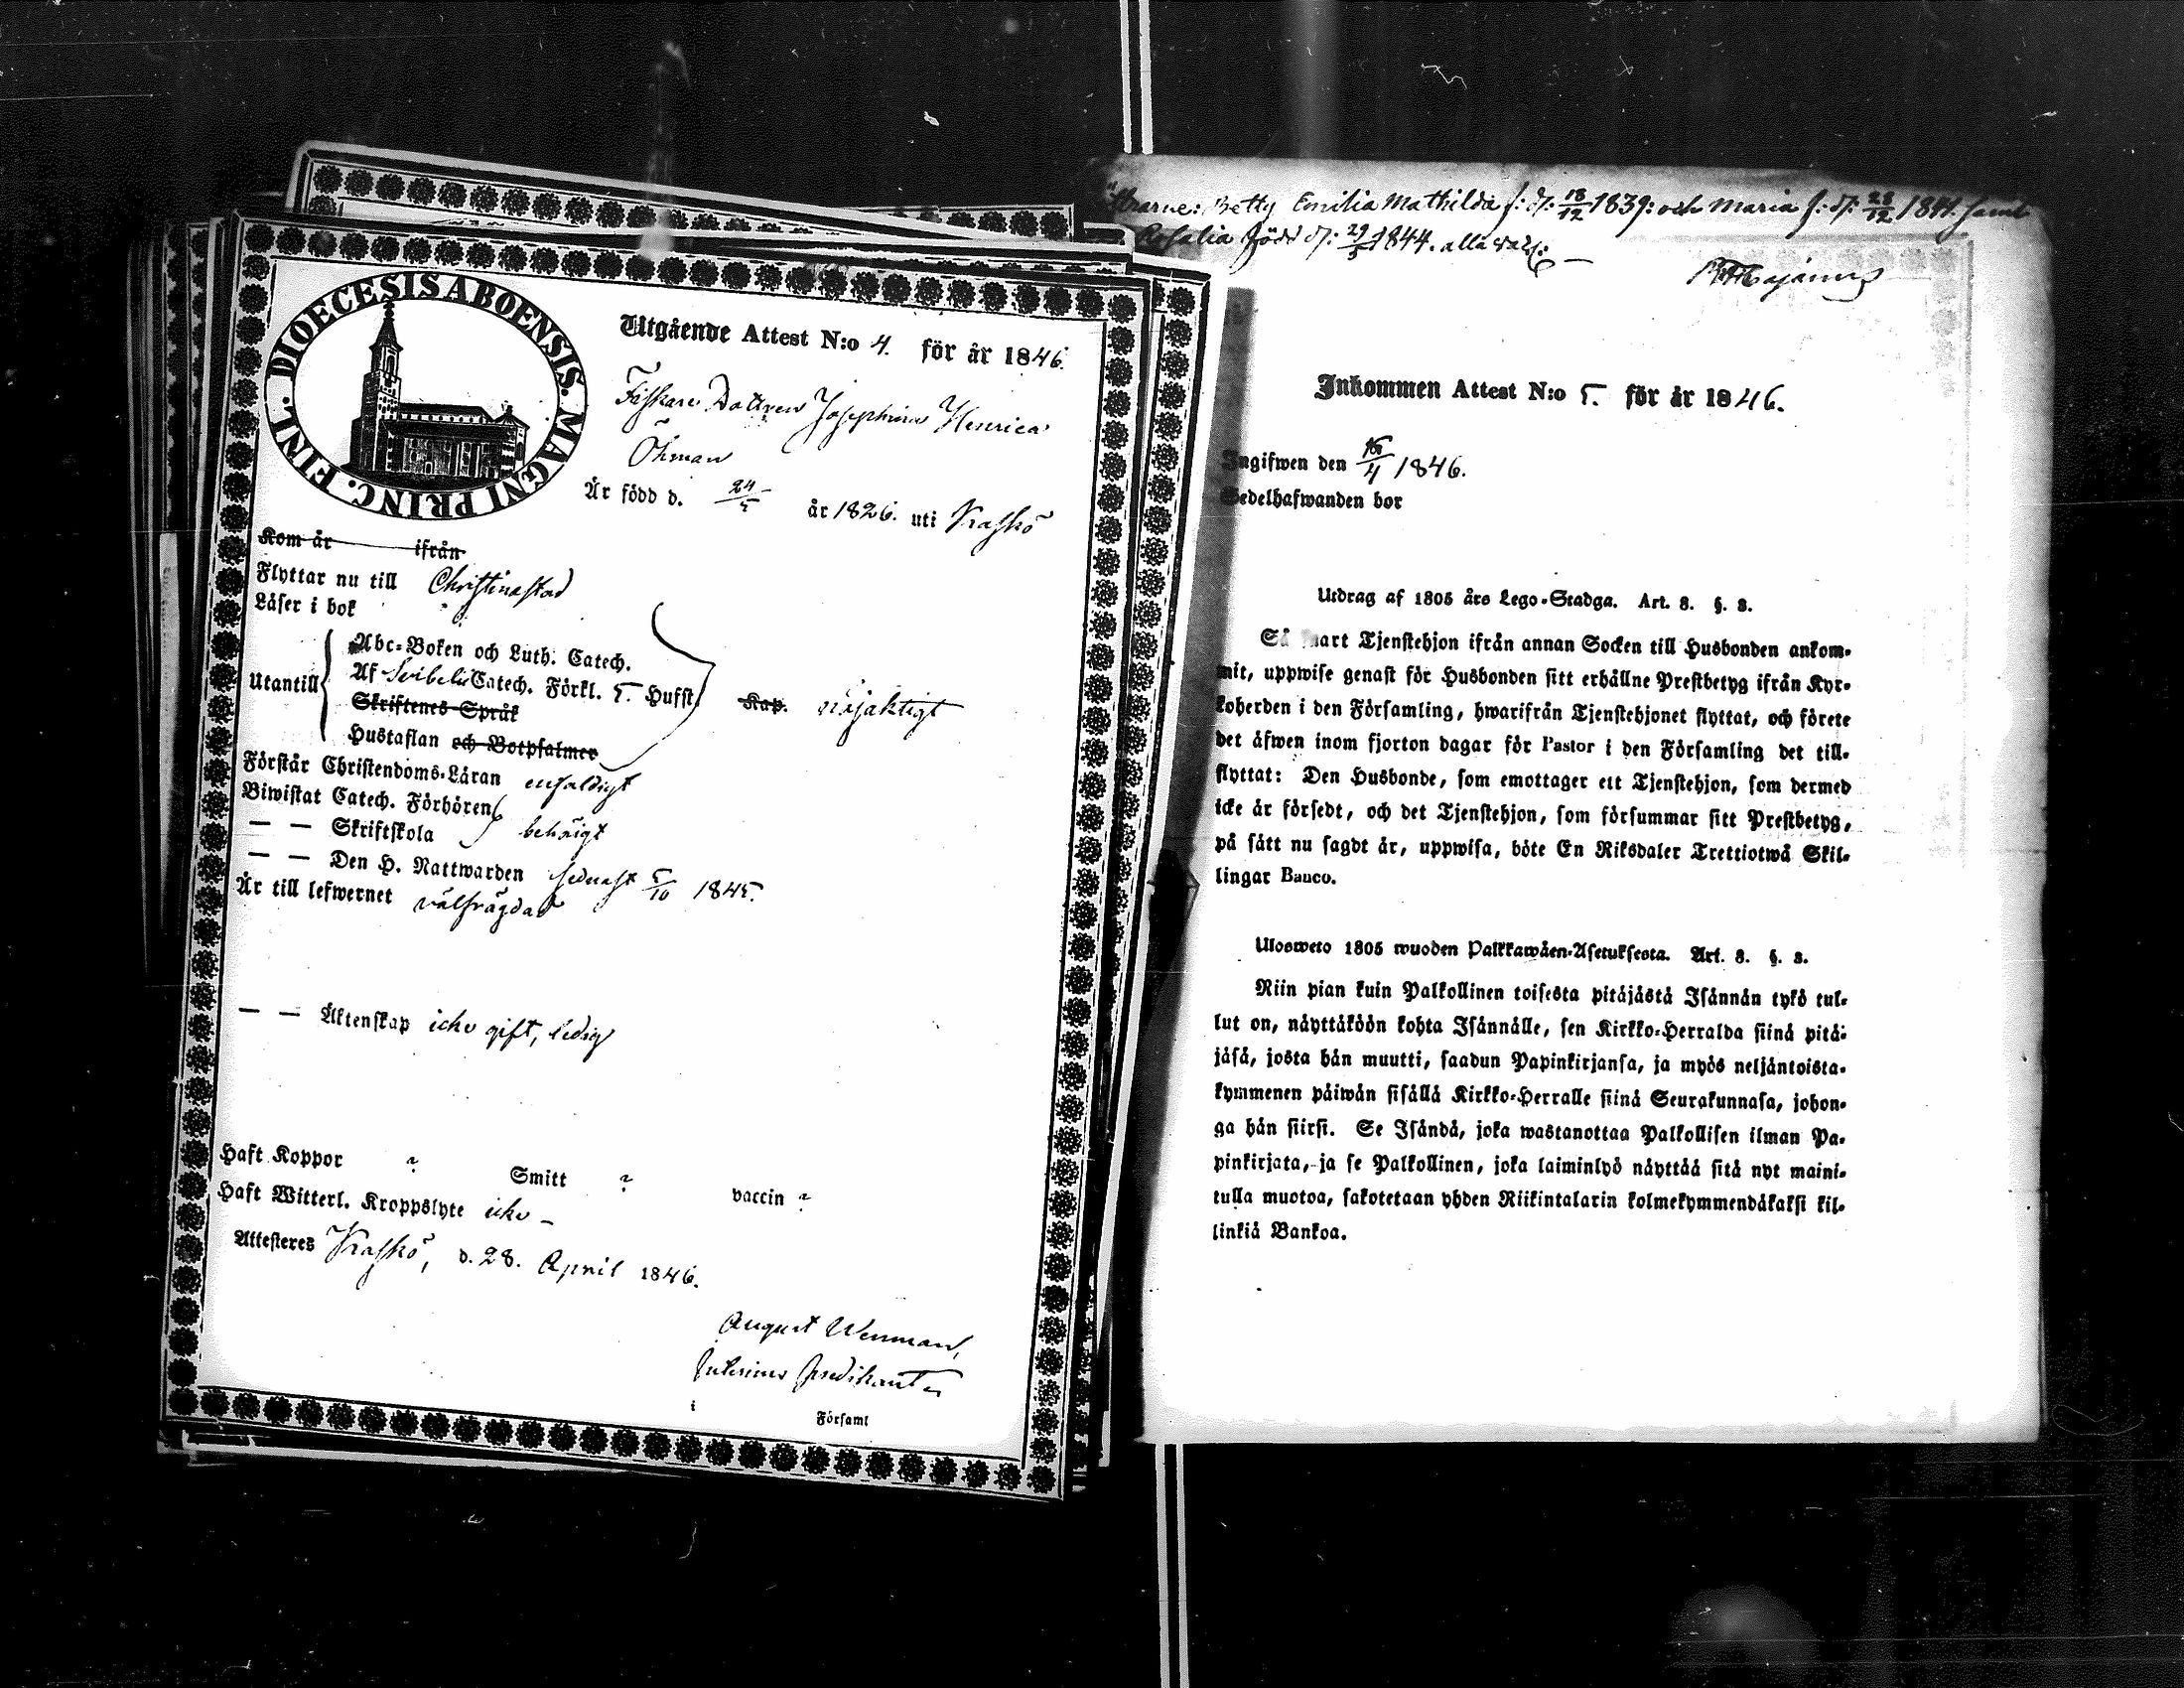 DIOECESIS ABOENSIS. MAGNI PRINC. FINL.
Utgående Attest N:o 4. för år 1846.
Fiskare Dottren Josephina Henrica
Öhman
Är född d. 24/5 år 1826. uti Kaskö
Kom år ifrån
Flyttar nu till Christinastad
Läser i bok
Utantill
Abc-Boken och Luth. Catech.
Af Svebelii Catech. Förkl. 5. Hufst.
Skriftenes Språk
Kap. nöjaktigt
Hustaflan och Botpsalmer
Förstår Christendoms-Läran enfaldigt
Biwistat Catech. Förhören
— — Skriftskola behörigt
— — Den H. Nattwarden sednast 5/10 1845.
Är till lefwernet välfrägdad
— — Äktenskap icke gift, ledig
Haft Koppor ? Smitt ? vaccin ?
Haft Witterl. Kroppslyte icke –
Attesteres Kaskö, d. 28. April 1846.
August Wenman,
Interims predikant
i Församl
Betty Emilia Mathilda f: d: 18/12 1839: och Maria f: d: 28/12 1841. samt
Rosalia född d: 29/5 1844. alla
Inkommen Attest N:o 5. för år 1846.
Ingifwen den 16/4 1846.
Sedelhafwanden bor
Utdrag af 1805 års Lego-Stadga. Art. 8. §. 8.
Så snart Tjenstehjon ifrån annan Socken till Husbonden ankom-
mit, uppwise genast för Husbonden sitt erhållne Prestbetyg ifrån Kyr-
koherden i den Församling, hwarifrån Tjenstehjonet flyttat, och förete
det äfwen inom fjorton dagar för Pastor i den Församling det till-
flyttat: Den Husbonde, som emottager ett Tjenstehjon, som dermed
icke är försedt, och det Tjenstehjon, som försummar sitt Prestbetyg,
på sätt nu sagdt är, uppwisa, böte En Riksdaler Trettiotwå Skil-
lingar Banco.
Ulosweto 1805 wuoden Palkkawäen-Asetuksesta. Art. 8. §. 8.
Niin pian kuin Palkollinen toisesta pitäjästä Isännän tykö tul-
lut on, näyttäköön kohta Isännälle, sen Kirkko-Herralda siinä pitä-
jäsä, josta hän muutti, saadun Papinkirjansa, ja myös neljäntoista-
kymmenen päiwän sisällä Kirkko-Herralle siinä Seurakunnasa, johon-
ga hän siirsi. Se Isändä, joka wastanottaa Palkollisen ilman Pa-
pinkirjata, ja se Palkollinen, joka laiminlyö näyttää sitä nyt maini-
tulla muotoa, sakotetaan yhden Riikintalarin kolmekymmendäkaksi kil-
linkiä Bankoa.